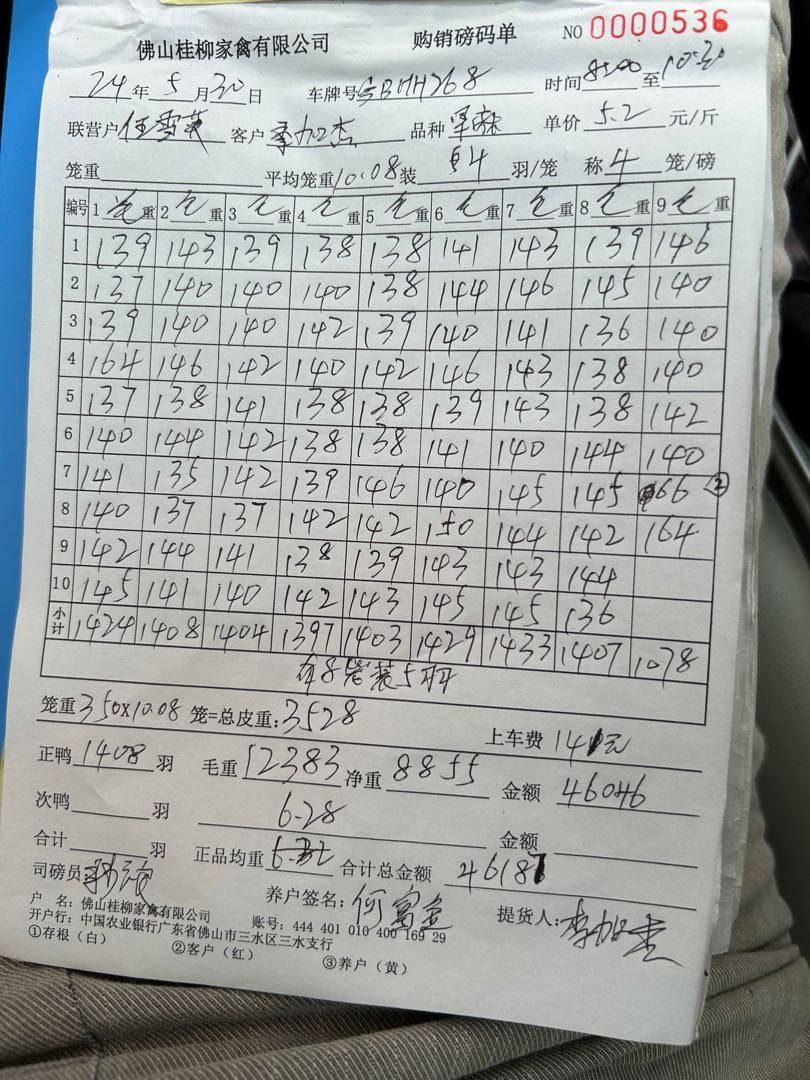 佛山桂柳家禽有限公司 购销磅码单 NO 0000536
24年5月30日 车牌号 H268 时间 至10:30
联营户 任雪英 客户 李加杰 品种 单价5.2元/斤
笼重 平均笼重10.08装 4 羽/笼 称4笼/磅
编号 1 毛重 2 毛重 3 毛重 4 毛重 5 毛重 6 毛重 7 毛重 8 毛重 9 毛重
1 139 143 139 138 138 141 143 139 146
2 137 140 140 140 138 144 146 145 140
3 139 140 140 142 139 140 141 136 140
4 164 146 142 140 142 146 143 138 140
5 137 138 141 138 138 139 143 138 142
6 140 144 142 138 138 141 140 144 140
7 141 135 142 139 146 140 145 145 66 ②
8 140 137 137 142 142 150 144 142 164
9 142 144 141 138 139 143 143 144
10 145 141 140 142 143 145 145 136
小计 1424 1408 1404 1397 1403 1429 1433 1407 1078
有8笼装5羽
笼重350x10.08笼=总皮重:3528 上车费 141元
正鸭1408羽 毛重12383净重8855 金额46046
次鸭 羽 6.28 金额
合计 羽 正品均重 合计总金额 46187
司磅员 养户签名: 何富 提货人: 李加杰
户 名: 佛山桂柳家禽有限公司
开户行: 中国农业银行广东省佛山市三水区三水支行 账号: 444 401 010 400 169 29
①存根(白) ②客户(红) ③养户(黄)